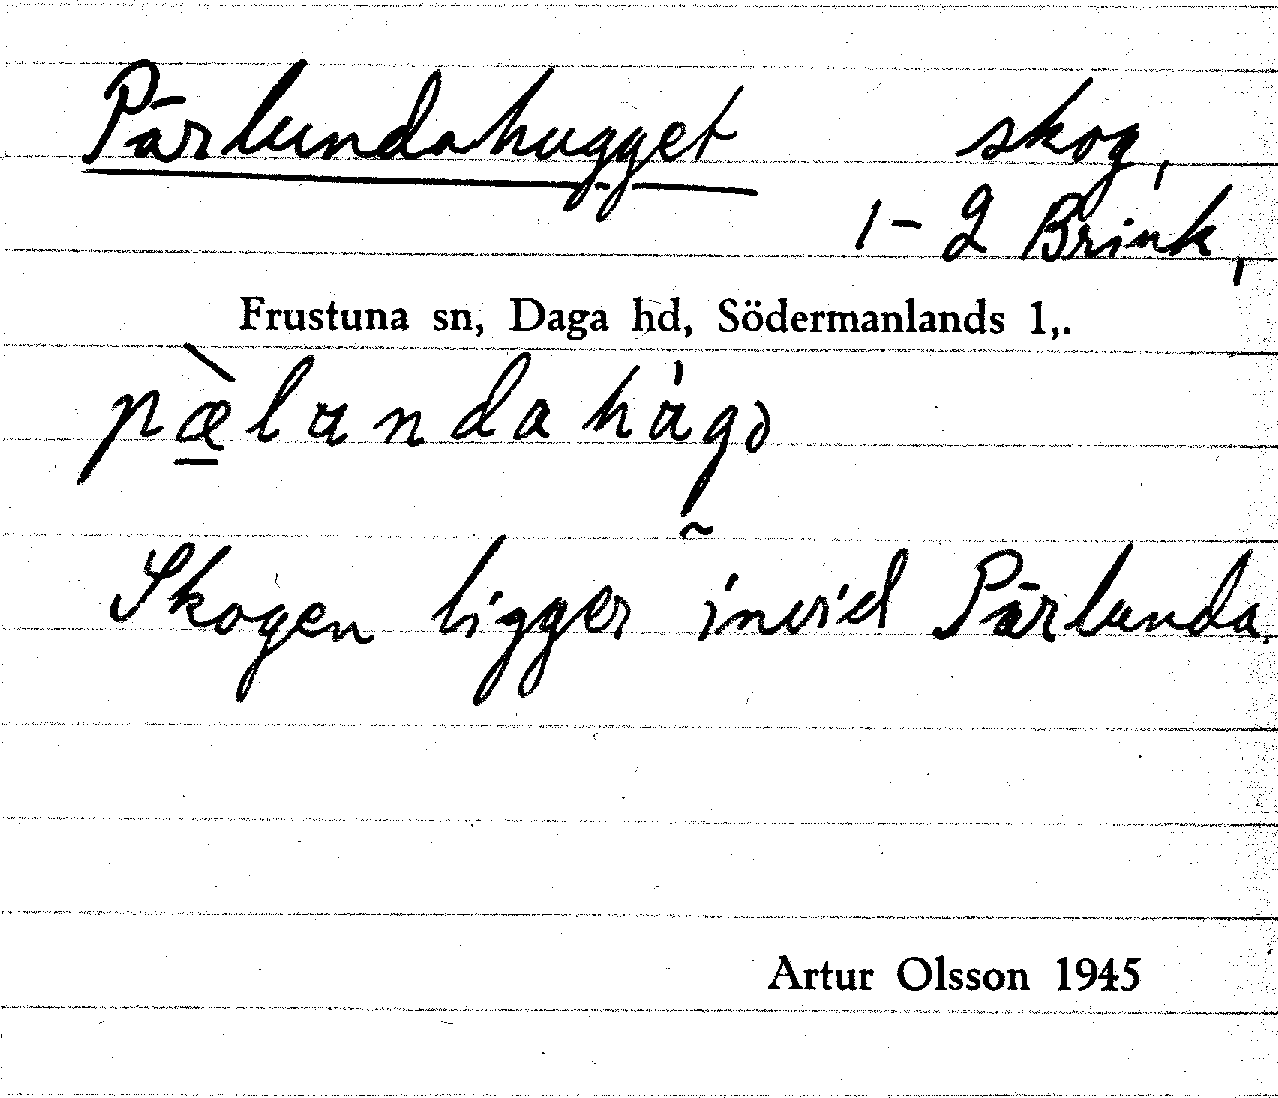 Pärlundahugget skog,
1-2 Brink,
Frustuna sn, Daga hd, Södermanlands l,.
Skogen ligger invid Pärlunda.
Artur Olsson 1945